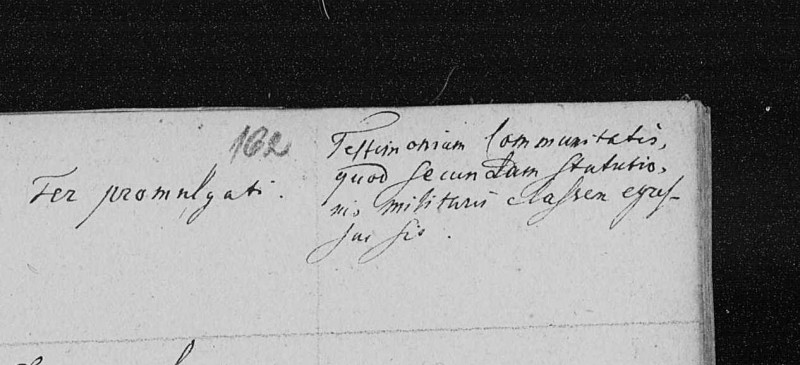 162
Ter promulgati.
Testimonium Communitatis,
quod secundam statutio,
nis militaris classen egres-
sus sis.